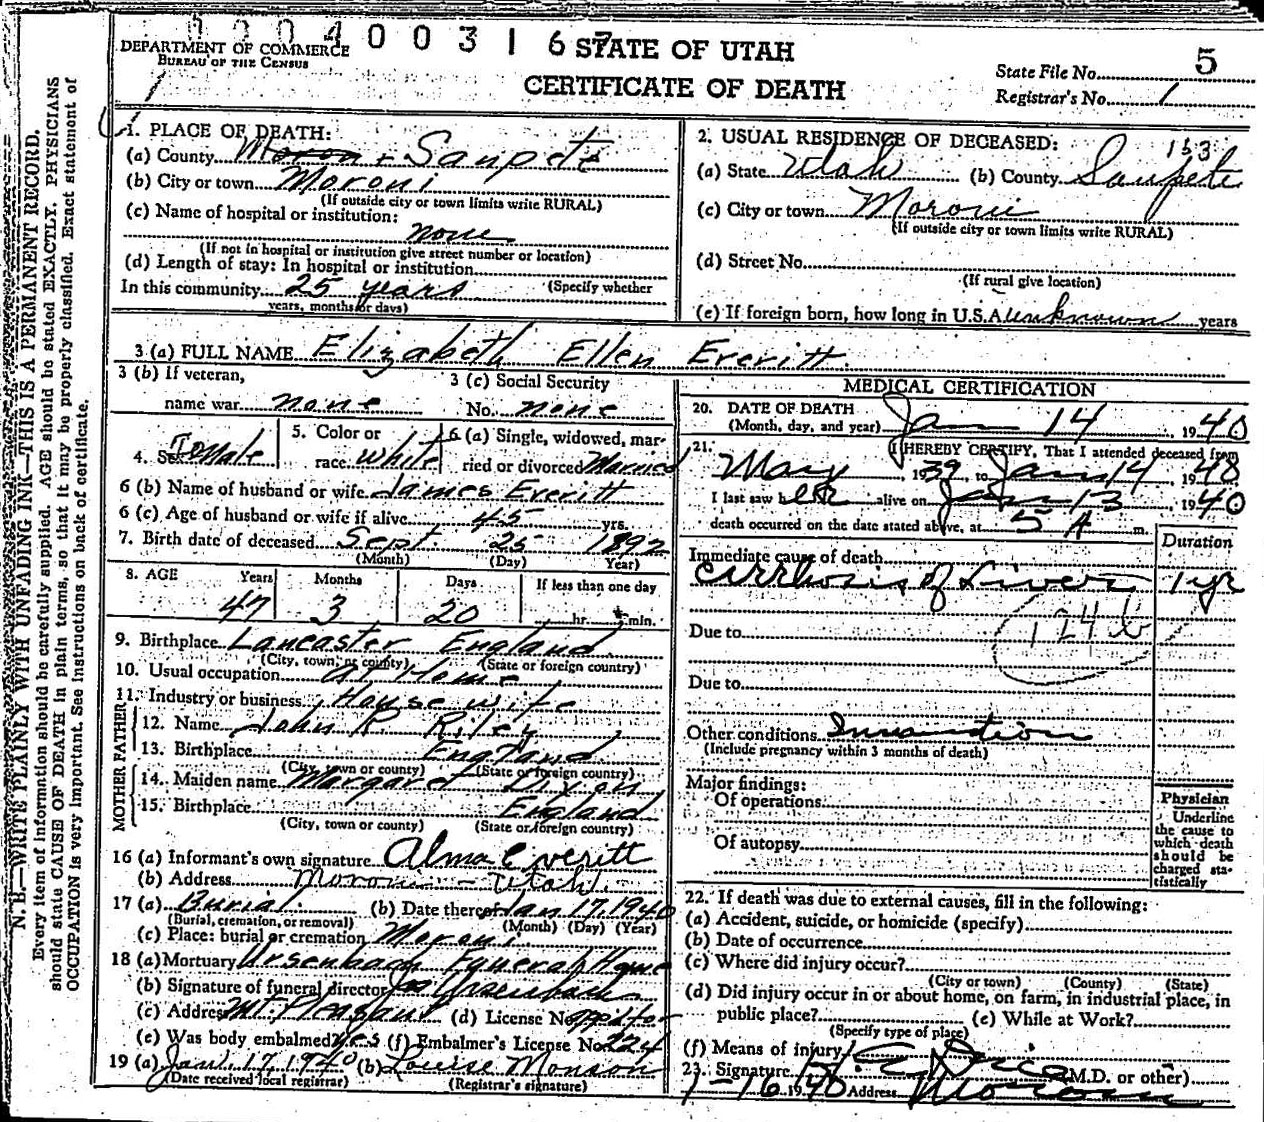 0 0 0 4 0 0 3 1 6
DEPARTMENT OF COMMERCE
BUREAU OF THE CENSUS
STATE OF UTAH
CERTIFICATE OF DEATH
5
State File No.
Registrar's No. 1
N. B.—WRITE PLAINLY WITH UNFADING INK—THIS IS A PERMANENT RECORD.
Every item of information should be carefully supplied. AGE should be stated EXACTLY. PHYSICIANS
should state CAUSE OF DEATH in plain terms, so that it may be properly classified. Exact statement of
OCCUPATION is very important. See instructions on back of certificate.
1. PLACE OF DEATH:
(a) County Sanpete
(b) City or town Moroni
(If outside city or town limits write RURAL)
(c) Name of hospital or institution:
none
(If not in hospital or institution give street number or location)
(d) Length of stay: In hospital or institution
In this community 25 years (Specify whether
years, months or days)
2. USUAL RESIDENCE OF DECEASED: 153
(a) State Utah (b) County Sanpete
(c) City or town Moroni
(If outside city or town limits write RURAL)
(d) Street No.
(If rural give location)
(e) If foreign born, how long in U.S.A. unknown years
3 (a) FULL NAME Elizabeth Ellen Everitt.
3 (b) If veteran,
name war none
3 (c) Social Security
No. none
4. Sex Female
5. Color or
race White
6 (a) Single, widowed, mar-
ried or divorced Married
6 (b) Name of husband or wife James Everitt
6 (c) Age of husband or wife if alive 45 yrs.
7. Birth date of deceased Sept. 25 1892
(Month) (Day) Year)
8. AGE Years Months Days If less than one day
47 3 20 hr. min.
9. Birthplace Lancaster England
(City, town, or county) (State or foreign country)
10. Usual occupation at Home
11. Industry or business House wife
FATHER
12. Name John R. Riley
13. Birthplace England
(City, town or county) (State or foreign country)
MOTHER
14. Maiden name Margaret Dixon
15. Birthplace England
(City, town or county) (State or foreign country)
16 (a) Informant's own signature Alma Everitt
(b) Address Moroni - Utah.
17 (a) Burial (b) Date thereof Jan 17, 1940
(Burial, cremation, or removal) (Month) (Day) (Year)
(c) Place: burial or cremation Moroni.
18 (a) Mortuary Ursenbach Funeral Home
(b) Signature of funeral director Ursenbach
(c) Address Mt. Pleasant (d) License No.
(e) Was body embalmed? Yes (f) Embalmer's License No. 224
19 (a) Jan. 17, 1940 (b) Louise Monson
(Date received local registrar) (Registrar's signature)
MEDICAL CERTIFICATION
20. DATE OF DEATH
(Month, day, and year) Jan 14, 1940
21. I HEREBY CERTIFY, That I attended deceased from
May, 1939, to Jan 14, 1940
I last saw her alive on Jan 13, 1940
death occurred on the date stated above, at 5 A m.
Duration
Immediate cause of death
Cirrhosis of Liver 1 yr
124b
Due to
Due to
Other conditions Inanition
(Include pregnancy within 3 months of death)
Major findings:
Of operations
Of autopsy
Physician
Underline
the cause to
which death
should be
charged sta-
tistically
22. If death was due to external causes, fill in the following:
(a) Accident, suicide, or homicide (specify)
(b) Date of occurrence
(c) Where did injury occur?
(City or town) (County) (State)
(d) Did injury occur in or about home, on farm, in industrial place, in
public place? (e) While at Work?
(Specify type of place)
(f) Means of injury
23. Signature (M.D. or other)
1-16 1940 Address Moroni